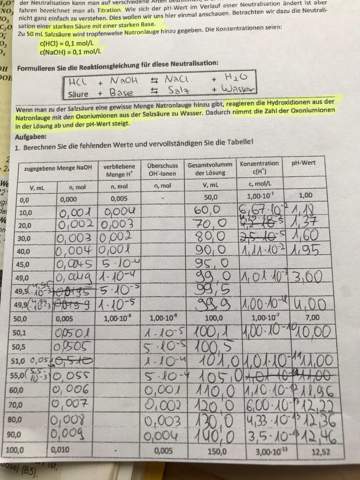 der Neutralisation kann man auf verschiedene
fahren bezeichnet man als Titration. Wie sich der pH-Wert im Verlauf einer Neutralisation ändert ist aber
nicht ganz einfach zu verstehen. Dies wollen wir uns hier einmal anschauen. Betrachten wir dazu die Neutrali-
sation einer starken Säure mit einer starken Base.
Zu 50 mL Salzsäure wird tropfenweise Natronlauge hinzu gegeben. Die Konzentrationen seien:
c(HCl) = 0,1 mol/L
c(NaOH) = 0,1 mol/L
Formulieren Sie die Reaktionsgleichung für diese Neutralisation:
HCl + NaOH ⇆ NaCl + H₂O
Säure + Base ⇆ Salz + Wasser
Wenn man zu der Salzsäure eine gewisse Menge Natronlauge hinzu gibt, reagieren die Hydroxidionen aus der
Natronlauge mit den Oxoniumionen aus der Salzsäure zu Wasser. Dadurch nimmt die Zahl der Oxoniumionen
in der Lösung ab und der pH-Wert steigt.
Aufgaben:
1. Berechnen Sie die fehlenden Werte und vervollständigen Sie die Tabelle!
zugegebene Menge NaOH verbliebene Menge H⁺ Überschuss OH⁻-Ionen Gesamtvolumen der Lösung Konzentration c(H⁺) pH-Wert
V, mL n, mol n, mol n, mol V, mL c, mol/L
0,0 0,000 0,005 - 50,0 1,00·10⁻¹ 1,00
10,0 0,001 0,004 60,0 6,67·10⁻² 1,18
20,0 0,002 0,003 70,0 1,37
30,0 0,003 0,002 80,0 2,5·10⁻² 1,60
40,0 0,004 0,001 90,0 1,11·10⁻² 1,95
45,0 0,0045 5·10⁻⁴ 95,0
49,0 0,0049 1·10⁻⁴ 99,0 1,01·10⁻³ 3,00
49,5 5·10⁻⁵ 99,5
49,9 1·10⁻⁵ 99,9 1,00·10⁻⁴ 4,00
50,0 0,005 1,00·10⁻⁸ 1,00·10⁻⁸ 100,0 1,00·10⁻⁷ 7,00
50,1 0,0501 1·10⁻⁵ 100,1 1,00·10⁻¹⁰ 10,00
50,5 0,0505 5·10⁻⁵ 100,5
51,0 1·10⁻⁴ 101,0 1,01·10⁻¹¹ 11,00
55,0 0,055 5·10⁻⁴ 105,0
60,0 0,006 0,001 110,0 1,10·10⁻¹² 11,96
70,0 0,007 0,002 120,0 6,00·10⁻¹³ 12,22
80,0 0,008 0,003 130,0 4,33·10⁻¹³ 12,36
90,0 0,009 0,004 140,0 3,5·10⁻¹³ 12,46
100,0 0,010 - 0,005 150,0 3,00·10⁻¹³ 12,52